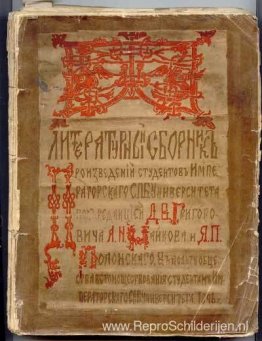 ЛИТЕРАТУРНЫЙ СБОРНИКЪ
ПРОИЗВЕДЕНІЙ СТУДЕНТОВЪ ИМПЕ
РАТОРСКАГО СПБ УНИВЕРСИТЕТА
ПОДЪ РЕДАКЦІЕЙ Д.В. ГРИГОРО
ВИЧА А.Н. МАЙКОВА И Я.П.
ПОЛОНСКАГО. ВЪ ПОЛЬЗУ ОБЩЕ
СТВА ВСПОМОЩЕСТВОВАНІЯ СТУДЕНТАМЪ ИМ
ПЕРАТОРСКАГО СПБ УНИВЕРСИТЕТА
www.ReproSchilderijen.nl